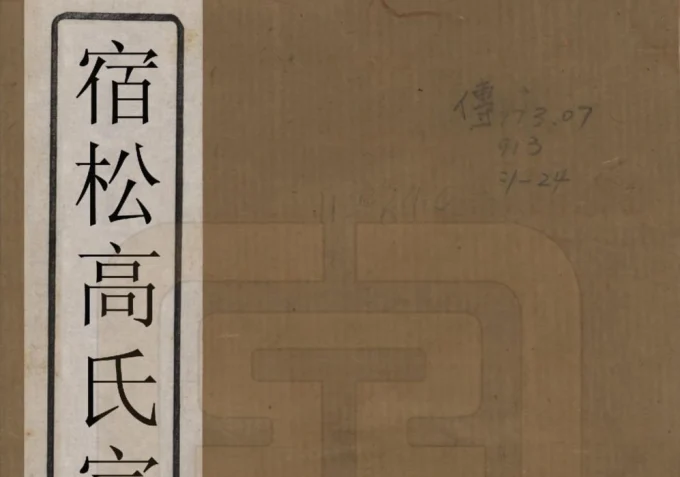 宿松高氏宗
傳 773.07
913
:1-24